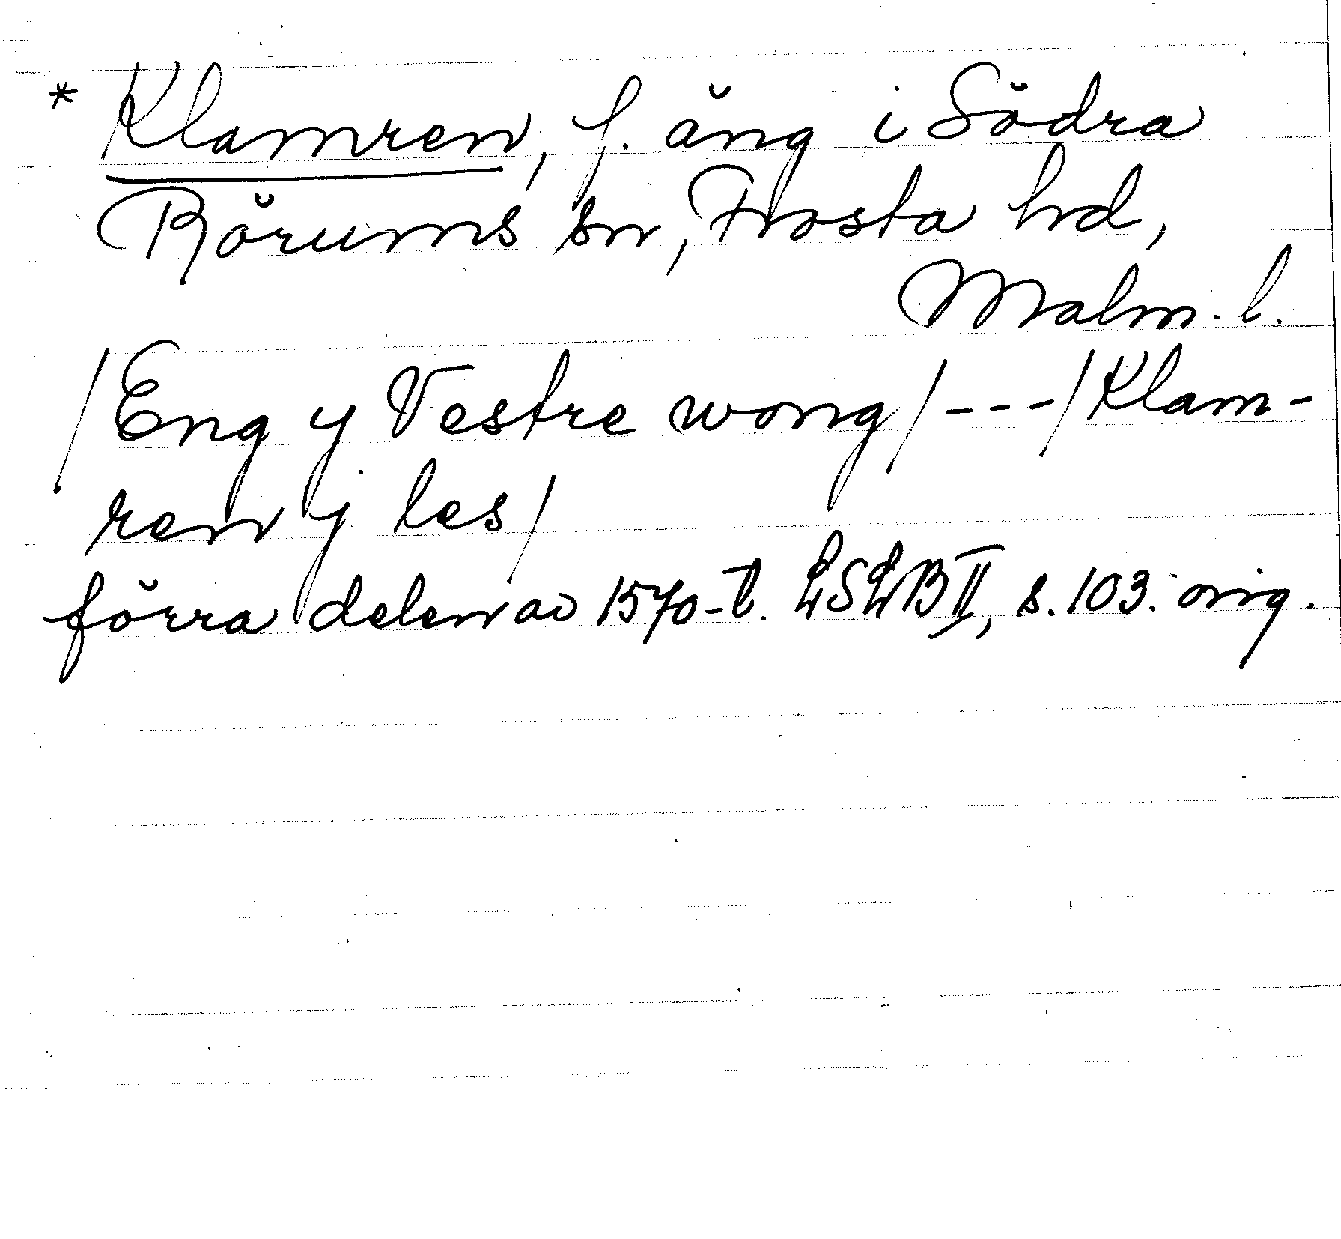 * Klamren, f. äng i Södra
Rörums sn, Frosta hd,
Malm. l.
/Eng y Vestre wong/---/Klam-
ren j les/
förra delen av 1570-t. LSLB II, s. 103. orig.